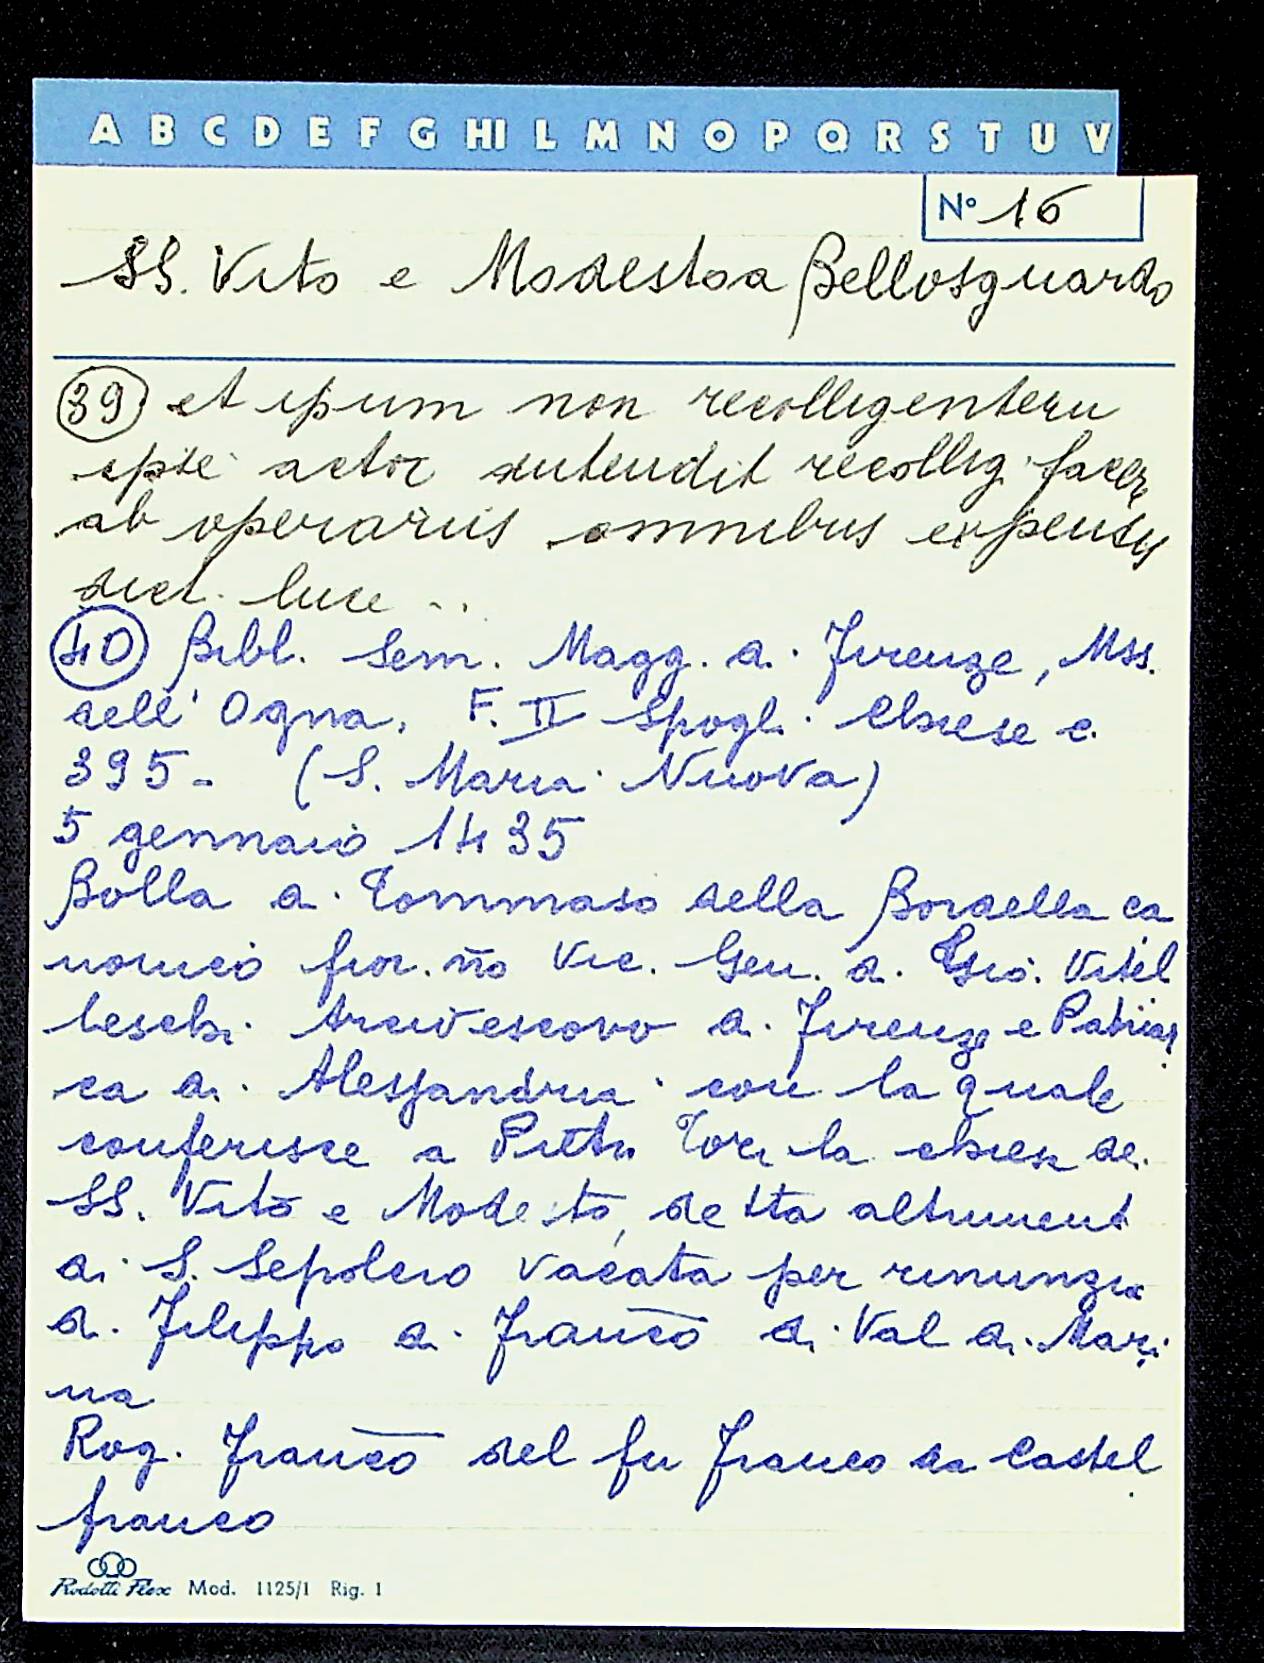 A B C D E F G HI L M N O P Q R S T U V
N° 16
SS. Vito e Modesto a Bellosguardo
39) et ipsum non recolligentem
ipse actor intendit recollig. facer
ab operariis omnibus expensis
dict. luce ..
40) Bibl. Sem. Magg. di Firenze, Mss.
dell' Ogna, F. II Spogli Chiese c.
395 - (S. Maria Nuova)
5 gennaio 1435
Bolla di Tommaso della Bordella ca
nonico fior.no Vic. Gen. di Gio. Vitel
leschi Arcivescovo di Firenze e Patriar
ca di Alessandria con la quale
conferisce a Pietro Tori la chiesa dei
SS. Vito e Modesto, detta altriment
di S. Sepolcro vacata per rinunzia
di Filippo di Franco di Val di Mari
na
Rog. Franco del fu Franco da Castel
franco
Rodotti Flex Mod. 1125/1 Rig. 1